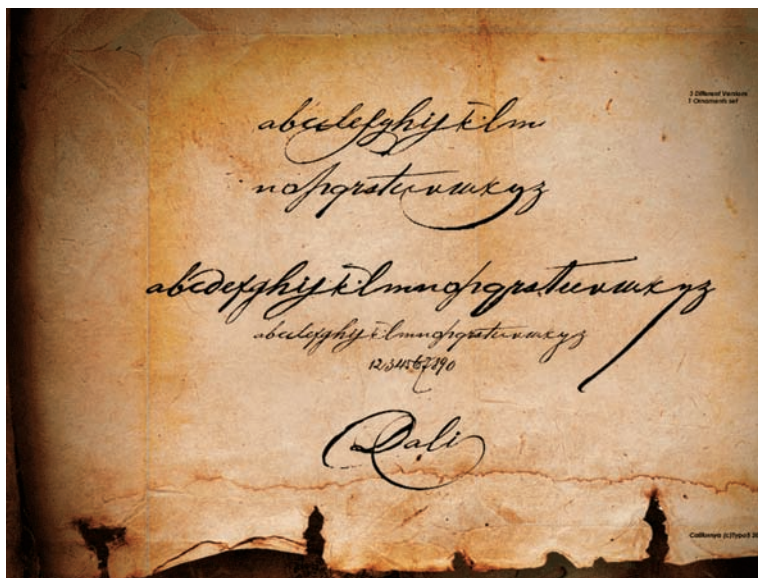 3 Different Versions
1 Ornaments set
abcdefghijklm
nopqrstuvwxyz
abcdefghijklmnopqrstuvwxyz
abcdefghijklmnopqrstuvwxyz
1234567890
Dali